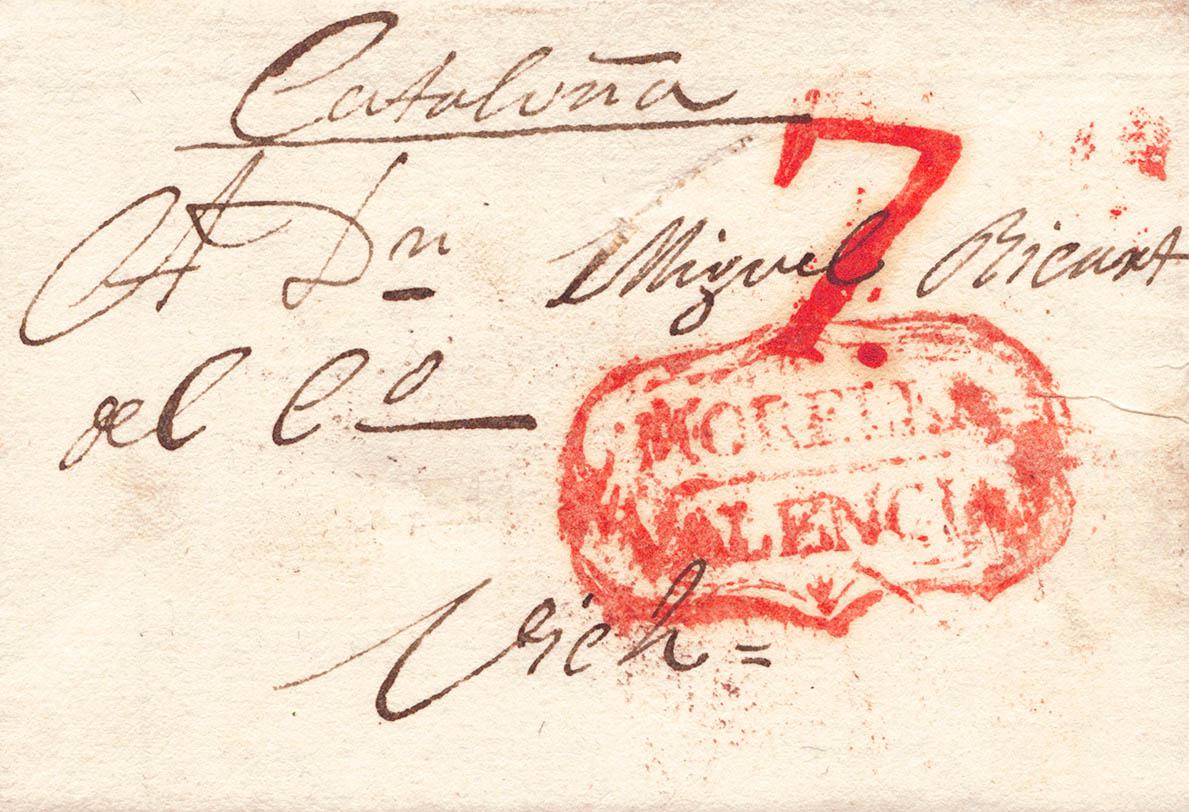 Cataloña
7.
A Dn Miguel Ricart
del Co
MORELLA
VALENCIA
Vich=